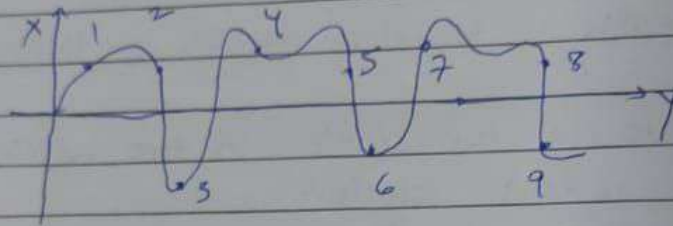 X 1 2 4
5 7 8
Y
3 6 9